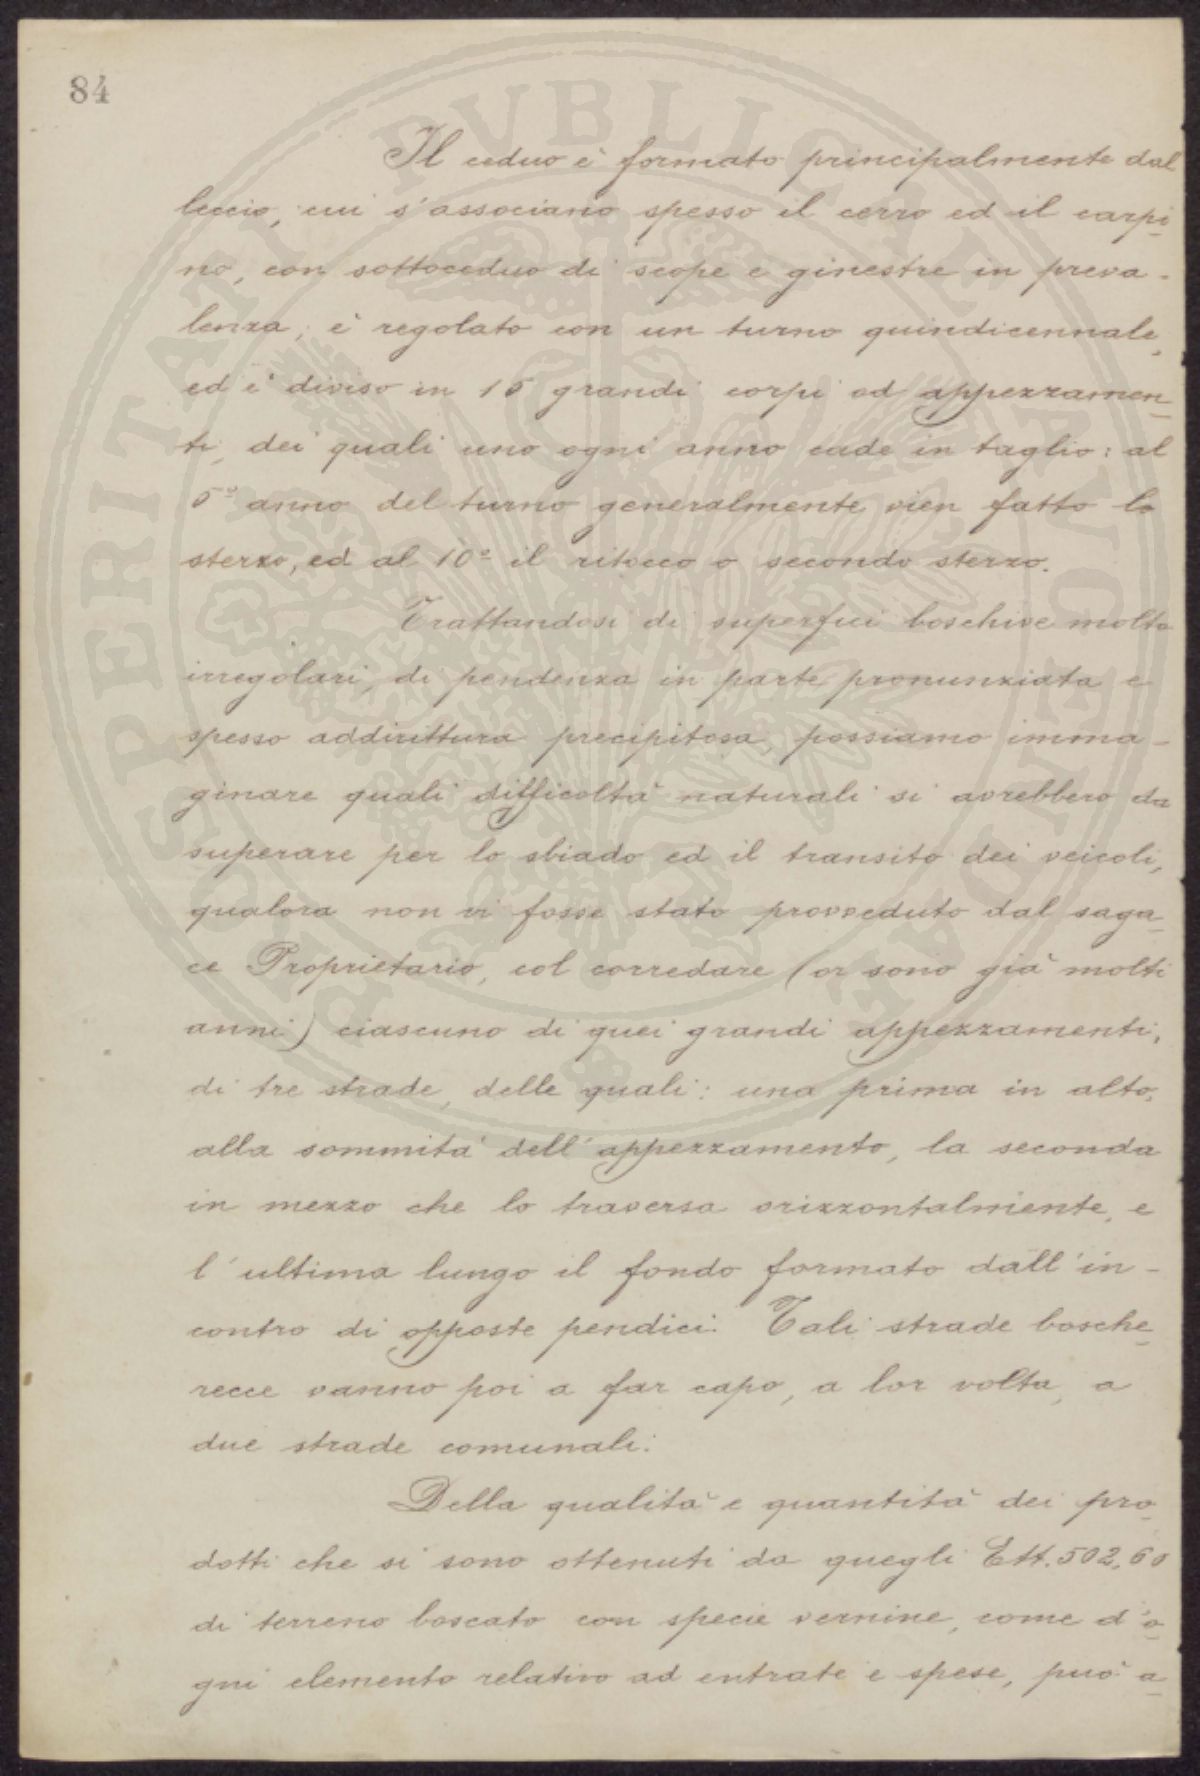 84
Il ceduo è formato principalmente dal
leccio, cui s'associano spesso il cerro ed il carpi-
no, con sottoceduo di scope e ginestre in preva-
lenza; è regolato con un turno quindicennale,
ed è diviso in 15 grandi corpi od appezzamen-
ti, dei quali uno ogni anno cade in taglio: al
5º anno del turno generalmente vien fatto lo
sterzo, ed al 10º il ritocco o secondo sterzo.
Trattandosi di superfici boschive molto
irregolari, di pendenza in parte pronunziata e
spesso addirittura precipitosa, possiamo imma-
ginare quali difficoltà naturali si avrebbero da
superare per lo sbiado ed il transito dei veicoli,
qualora non vi fosse stato provveduto dal saga-
ce Proprietario, col corredare (or sono già molti
anni) ciascuno di quei grandi appezzamenti,
di tre strade, delle quali: una prima in alto,
alla sommità dell'appezzamento, la seconda
in mezzo che lo traversa orizzontalmente, e
l'ultima lungo il fondo formato dall'in-
contro di opposte pendici. Tali strade bosche-
recce vanno poi a far capo, a lor volta, a
due strade comunali.
Della qualità e quantità dei pro-
dotti che si sono ottenuti da quegli Ett. 502,60
di terreno boscato con specie vernine, come d'o-
gni elemento relativo ad entrate e spese, può a-
PROSPERITATI PVBLICAE AVGENDAE